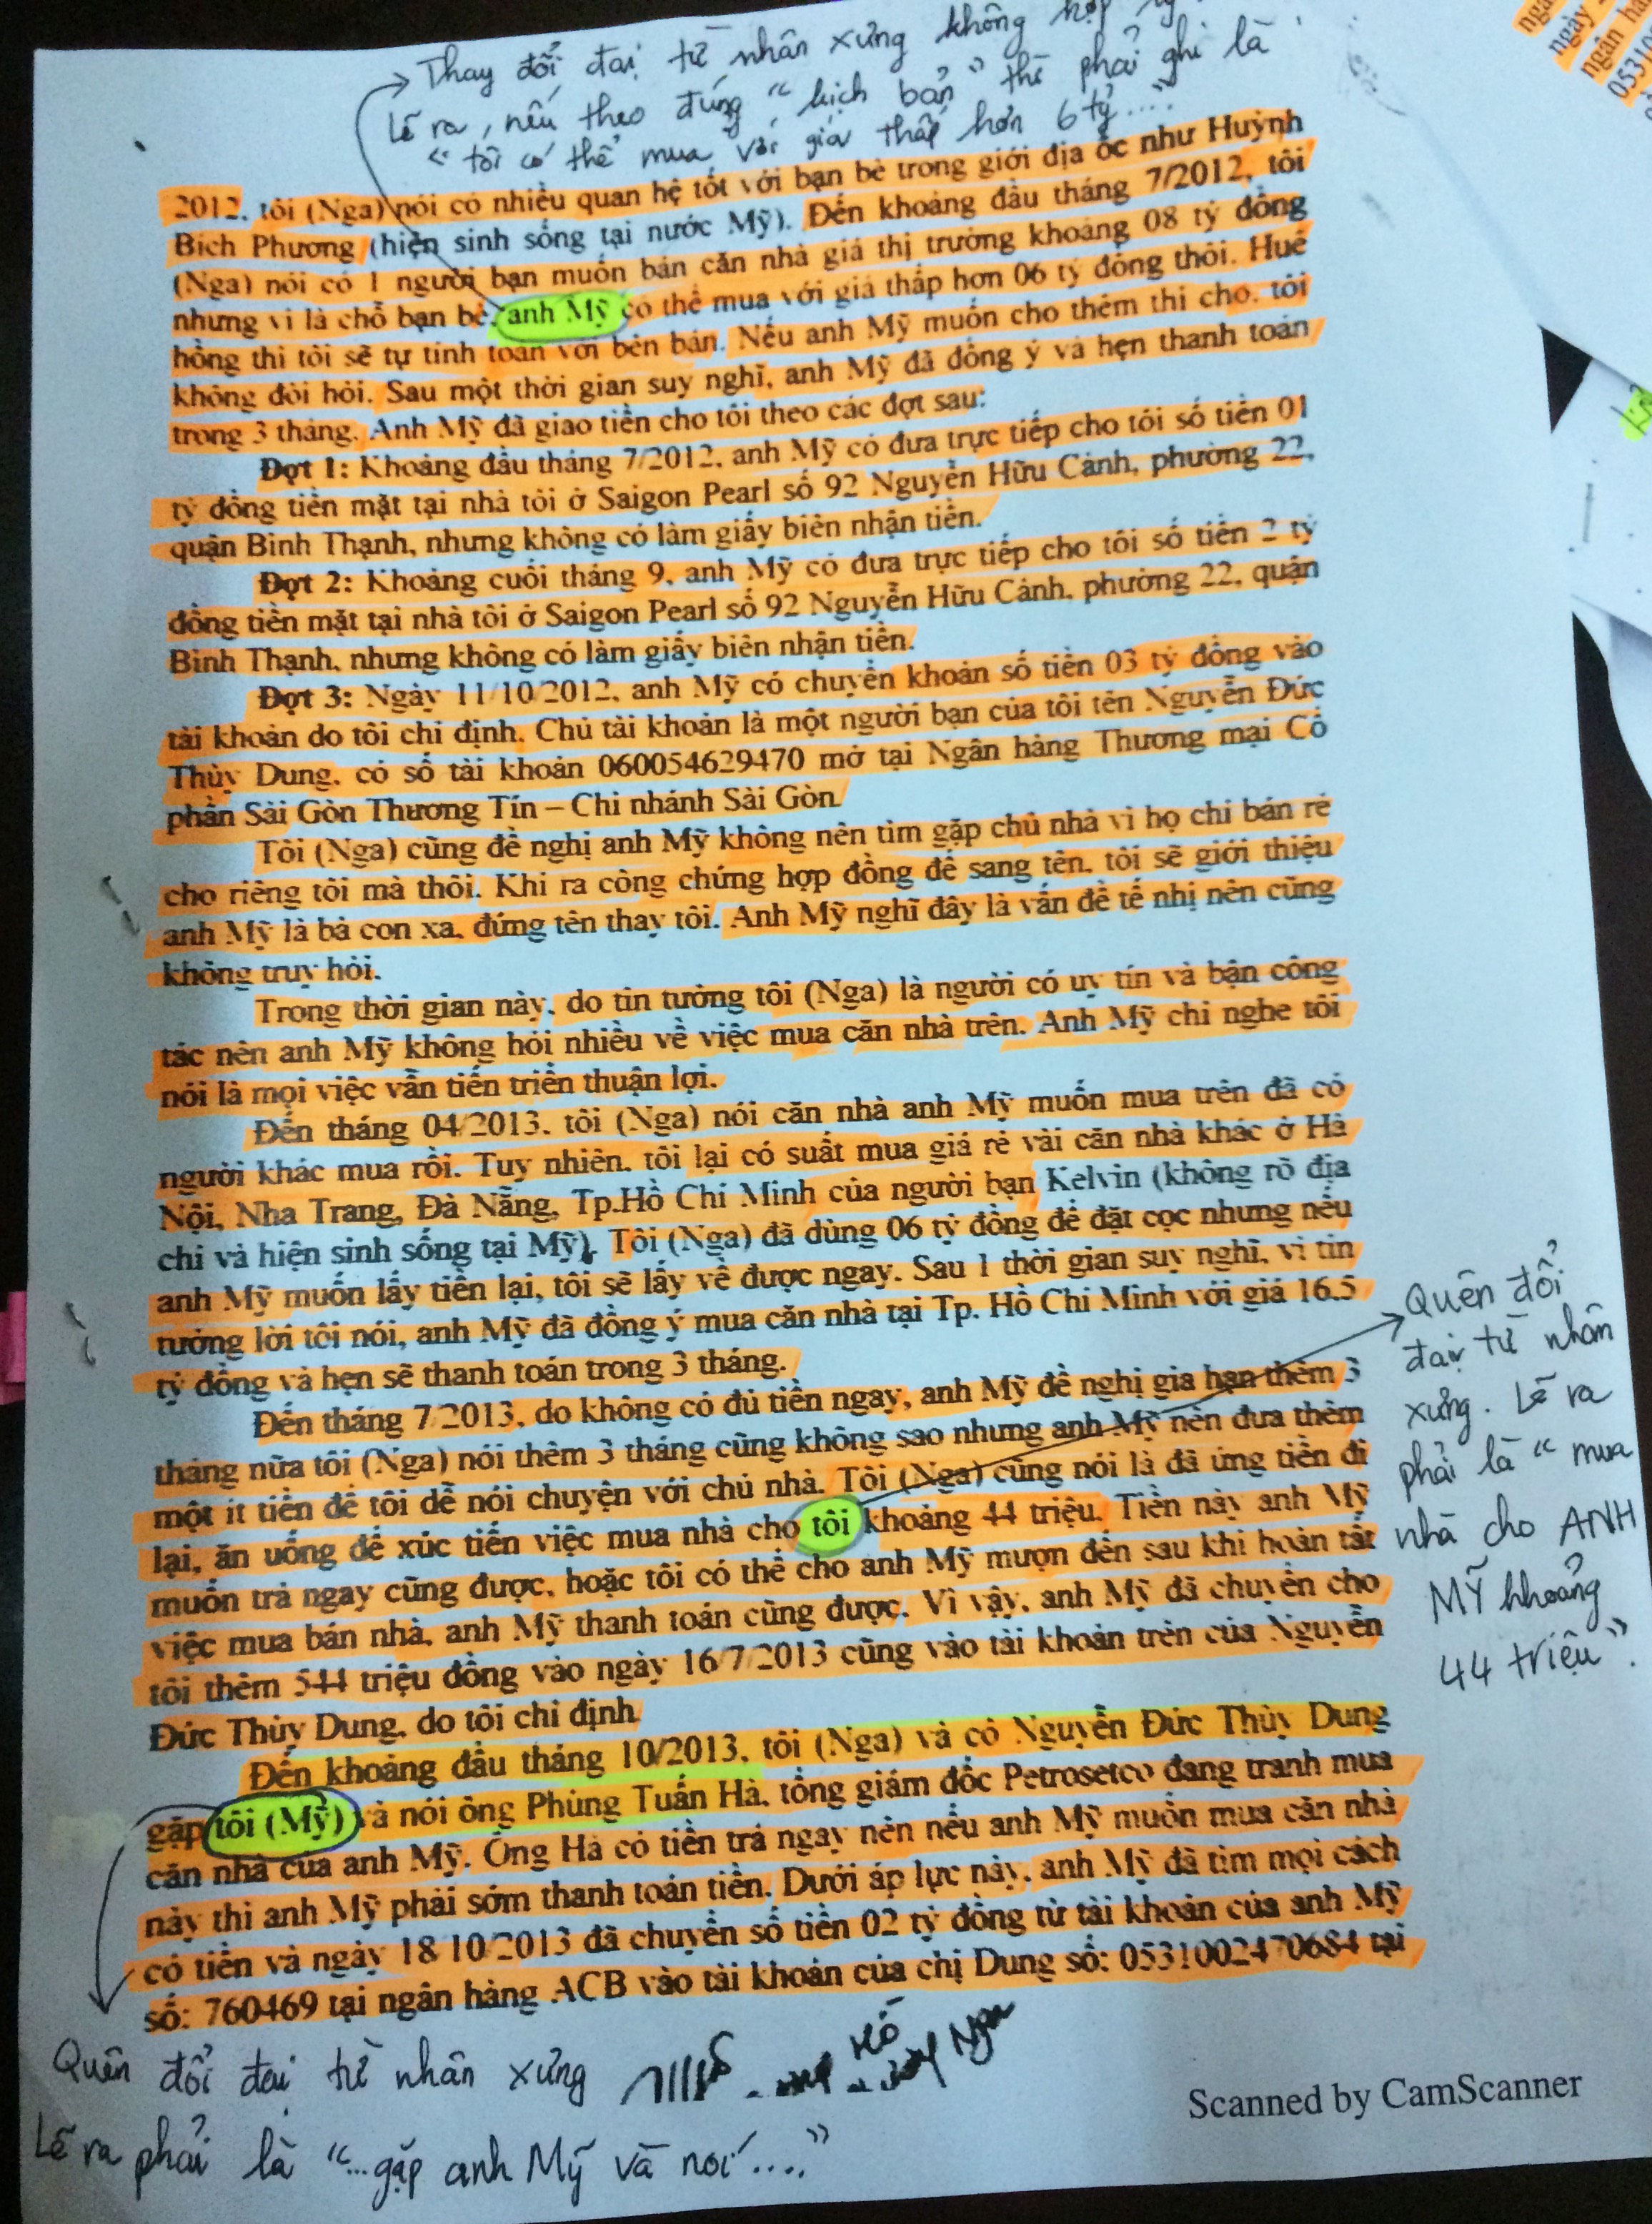 Thay đổi đại từ nhân xưng không hợp lý.
Lẽ ra, nếu theo đúng "kịch bản" thì phải ghi là
"tôi có thể mua với giá thấp hơn 6 tỷ...."
2012, tôi (Nga) nói có nhiều quan hệ tốt với bạn bè trong giới địa ốc như Huỳnh
Bích Phương (hiện sinh sống tại nước Mỹ). Đến khoảng đầu tháng 7/2012, tôi
(Nga) nói có 1 người bạn muốn bán căn nhà giá thị trường khoảng 08 tỷ đồng
nhưng vì là chỗ bạn bè, anh Mỹ có thể mua với giá thấp hơn 06 tỷ đồng thôi. Huê
hồng thì tôi sẽ tự tính toán với bên bán. Nếu anh Mỹ muốn cho thêm thì cho, tôi
không đòi hỏi. Sau một thời gian suy nghĩ, anh Mỹ đã đồng ý và hẹn thanh toán
trong 3 tháng. Anh Mỹ đã giao tiền cho tôi theo các đợt sau:
Đợt 1: Khoảng đầu tháng 7/2012, anh Mỹ có đưa trực tiếp cho tôi số tiền 01
tỷ đồng tiền mặt tại nhà tôi ở Saigon Pearl số 92 Nguyễn Hữu Cảnh, phường 22,
quận Bình Thạnh, nhưng không có làm giấy biên nhận tiền.
Đợt 2: Khoảng cuối tháng 9, anh Mỹ có đưa trực tiếp cho tôi số tiền 2 tỷ
đồng tiền mặt tại nhà tôi ở Saigon Pearl số 92 Nguyễn Hữu Cảnh, phường 22, quận
Bình Thạnh, nhưng không có làm giấy biên nhận tiền.
Đợt 3: Ngày 11/10/2012, anh Mỹ có chuyển khoản số tiền 03 tỷ đồng vào
tài khoản do tôi chỉ định. Chủ tài khoản là một người bạn của tôi tên Nguyễn Đức
Thùy Dung, có số tài khoản 060054629470 mở tại Ngân hàng Thương mại Cổ
phần Sài Gòn Thương Tín – Chi nhánh Sài Gòn.
Tôi (Nga) cũng đề nghị anh Mỹ không nên tìm gặp chủ nhà vì họ chỉ bán rẻ
cho riêng tôi mà thôi. Khi ra công chứng hợp đồng để sang tên, tôi sẽ giới thiệu
anh Mỹ là bà con xa, đứng tên thay tôi. Anh Mỹ nghĩ đây là vấn đề tế nhị nên cũng
không truy hỏi.
Trong thời gian này, do tin tưởng tôi (Nga) là người có uy tín và bận công
tác nên anh Mỹ không hỏi nhiều về việc mua căn nhà trên. Anh Mỹ chỉ nghe tôi
nói là mọi việc vẫn tiến triển thuận lợi.
Đến tháng 04/2013, tôi (Nga) nói căn nhà anh Mỹ muốn mua trên đã có
người khác mua rồi. Tuy nhiên, tôi lại có suất mua giá rẻ vài căn nhà khác ở Hà
Nội, Nha Trang, Đà Nẵng, Tp.Hồ Chí Minh của người bạn Kelvin (không rõ địa
chỉ và hiện sinh sống tại Mỹ). Tôi (Nga) đã dùng 06 tỷ đồng để đặt cọc nhưng nếu
anh Mỹ muốn lấy tiền lại, tôi sẽ lấy về được ngay. Sau 1 thời gian suy nghĩ, vì tin
tưởng lời tôi nói, anh Mỹ đã đồng ý mua căn nhà tại Tp. Hồ Chí Minh với giá 16.5
tỷ đồng và hẹn sẽ thanh toán trong 3 tháng.
Đến tháng 7/2013, do không có đủ tiền ngay, anh Mỹ đề nghị gia hạn thêm 3
tháng nữa tôi (Nga) nói thêm 3 tháng cũng không sao nhưng anh Mỹ nên đưa thêm
một ít tiền để tôi dễ nói chuyện với chủ nhà. Tôi (Nga) cũng nói là đã ứng tiền đi
lại, ăn uống để xúc tiến việc mua nhà cho tôi khoảng 44 triệu. Tiền này anh Mỹ
muốn trả ngay cũng được, hoặc tôi có thể cho anh Mỹ mượn đến sau khi hoàn tất
việc mua bán nhà, anh Mỹ thanh toán cũng được. Vì vậy, anh Mỹ đã chuyển cho
tôi thêm 544 triệu đồng vào ngày 16/7/2013 cũng vào tài khoản trên của Nguyễn
Đức Thùy Dung, do tôi chỉ định.
Đến khoảng đầu tháng 10/2013, tôi (Nga) và cô Nguyễn Đức Thùy Dung
gặp tôi (Mỹ) và nói ông Phùng Tuấn Hà, tổng giám đốc Petrosetco đang tranh mua
căn nhà của anh Mỹ. Ông Hà có tiền trả ngay nên nếu anh Mỹ muốn mua căn nhà
này thì anh Mỹ phải sớm thanh toán tiền. Dưới áp lực này, anh Mỹ đã tìm mọi cách
có tiền và ngày 18/10/2013 đã chuyển số tiền 02 tỷ đồng từ tài khoản của anh Mỹ
số: 760469 tại ngân hàng ACB vào tài khoản của chị Dung số: 0531002470684 tại
Quên đổi
đại từ nhân
xưng. Lẽ ra
phải là "mua
nhà cho ANH
MỸ khoảng
44 triệu".
Quên đổi đại từ nhân xưng
Lẽ ra phải là "...gặp anh Mỹ và nói....."
Scanned by CamScanner
ngày
ngân hà
0531